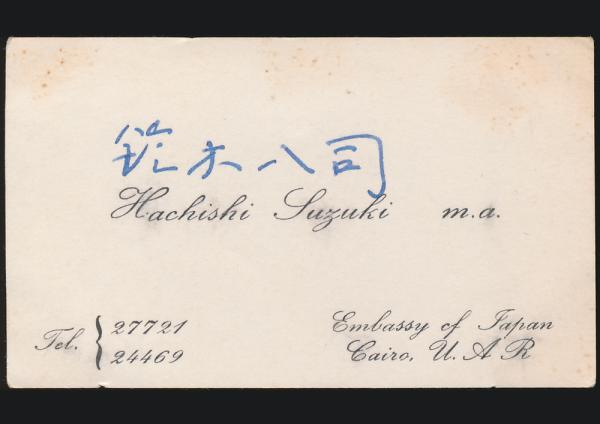 鈴木八司
Hachishi Suzuki m.a.
Tel. { 27721
24469
Embassy of Japan
Cairo, U. A R